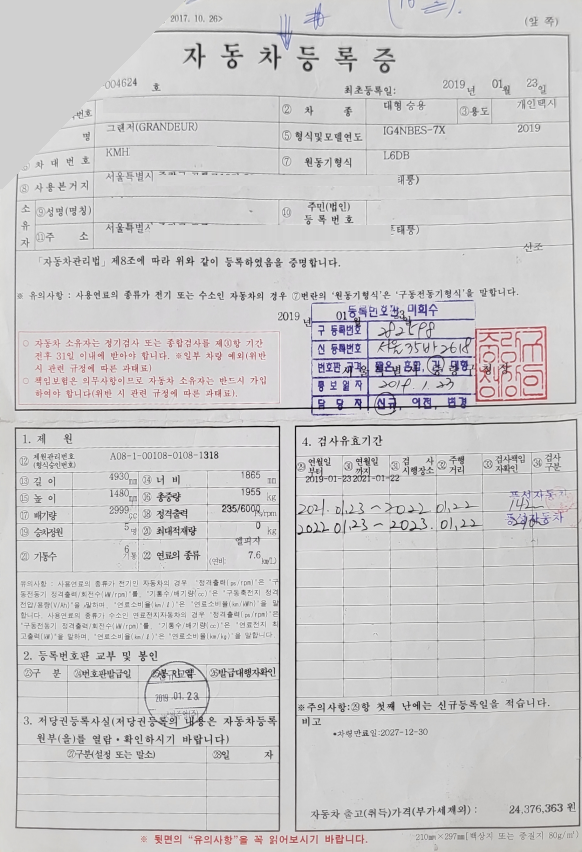 2017. 10. 26>
(앞 쪽)
자동차등록증
-004624 호
최초등록일: 2019년 01월 23일
번호
② 차 종 대형 승용 ③용도 개인택시
명 그랜저(GRANDEUR) ⑤ 형식및모델연도 IG4NBES-7X 2019
차 대 번 호 KMH ⑦ 원동기형식 L6DB
⑧ 사용본거지 서울특별시 태릉)
소유자
⑨성명(명칭) ⑩ 주민(법인)등록번호
⑪주 소 서울특별시 태릉)
「자동차관리법」 제8조에 따라 위와 같이 등록하였음을 증명합니다.
※ 유의사항 : 사용연료의 종류가 전기 또는 수소인 자동차의 경우 ⑦번란의 '원동기형식'은 '구동전동기형식'을 말합니다.
2019 년 01 월 23 일
등록번호판 미회수
구 등록번호
신 등록번호 서울35바2618
번호판 규격
통 보 일 자 2019, 1, 23
담 당 자 신규, 이전, 변경
○ 자동차 소유자는 정기검사 또는 종합검사를 제㉚항 기간
전후 31일 이내에 받아야 합니다. ※일부 차량 예외(위반
시 관련 규정에 따른 과태료)
○ 책임보험은 의무사항이므로 자동차 소유자는 반드시 가입
하여야 합니다(위반 시 관련 규정에 따른 과태료).
1. 제 원
⑫ 제원관리번호(형식승인번호) A08-1-00108-0108-1318
⑬ 길 이 4930mm ⑭ 너 비 1865mm
⑮ 높 이 1480mm ⑯ 총중량 1955kg
⑰ 배기량 2999cc ⑱ 정격출력 235/6000ps/rpm
⑲ 승차정원 5명 ⑳ 최대적재량 0kg
㉑ 기통수 6기통 ㉒ 연료의 종류 엘피지 (연비: 7.6km/L)
유의사항 : 사용연료의 종류가 전기인 자동차의 경우 '정격출력(ps/rpm)'은 '구
동전동기 정격출력/회전수(kW/rpm)'를, '기통수/배기량(cc)'은 '구동축전지 정격
전압/용량(V/Ah)'을 말하며, '연료소비율(km/ℓ)'은 '연료소비율(km/kWh)'을 말합니
다. 사용연료의 종류가 수소인 연료전지자동차의 경우 '정격출력(ps/rpm)'은
'구동전동기 정격출력/회전수(kW/rpm)'를, '기통수/배기량(cc)'은 '연료전지 최
고출력(kW)'을 말하며, '연료소비율(km/ℓ)'은 '연료소비율(km/kg)'을 말합니다
2. 등록번호판 교부 및 봉인
㉓구 분 ㉔번호판발급일 ㉕봉 인 일 ㉖발급대행자확인
2019 .01.2 3.
3. 저당권등록사실(저당권등록의 내용은 자동차등록
원부(을)를 열람・확인하시기 바랍니다)
㉗구분(설정 또는 말소) ㉘일 자
4. 검사유효기간
㉙ 연월일부터 ㉚ 연월일까지 ㉛ 검 사시행장소 ㉜ 주행거리 ㉝ 검사책임자확인 ㉞ 검사구분
2019-01-23 2021-01-22
2021. 01. 23 ~ 2022 01. 22
2022 01. 23 ~ 2023. 01. 22
※주의사항:㉙항 첫째 난에는 신규등록일을 적습니다.
비고
*차령만료일:2027-12-30
자동차 출고(취득)가격(부가세제외) : 24,376,363 원
※ 뒷면의 "유의사항"을 꼭 읽어보시기 바랍니다.
210㎜×297㎜[백상지 또는 중질지 80g/㎡]